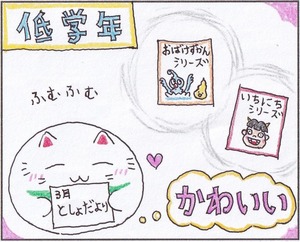 低学年
おばけずかん
シリーズ
いちにち
シリーズ
ふむふむ
3月
としょだより
かわいい